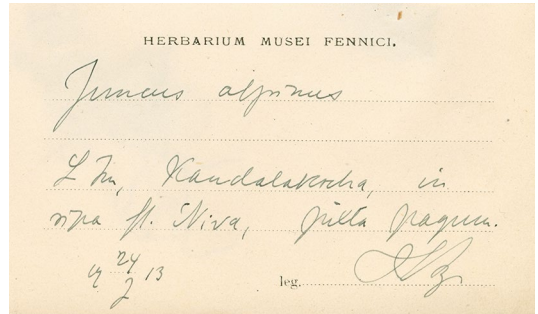 HERBARIUM MUSEI FENNICI.
Juncus alpinus
L Im, Kandalakscha, in
ripa fl. Niva, juxta pagum.
19 24/7 13
leg.